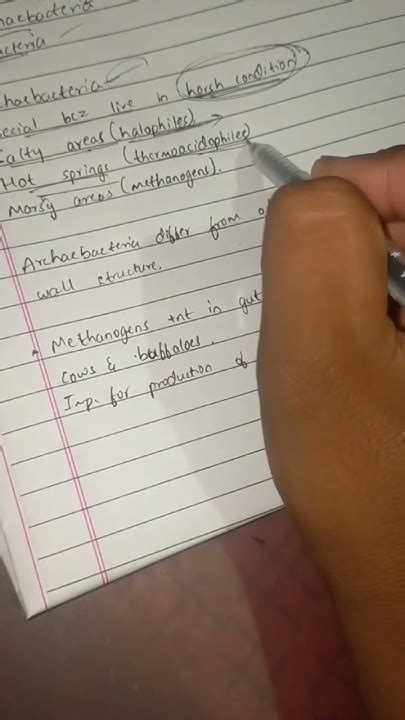 haebacteria
acteria
haebacteria
ecial bcz live in harsh condition
alty areas (halophiles)
Hot springs (thermoacidophiles)
Marsy areas (methanogens).
Archaebacteria differ from
wall structure.
Methanogens tnt in gut
cows & buffaloes.
Imp. for production of